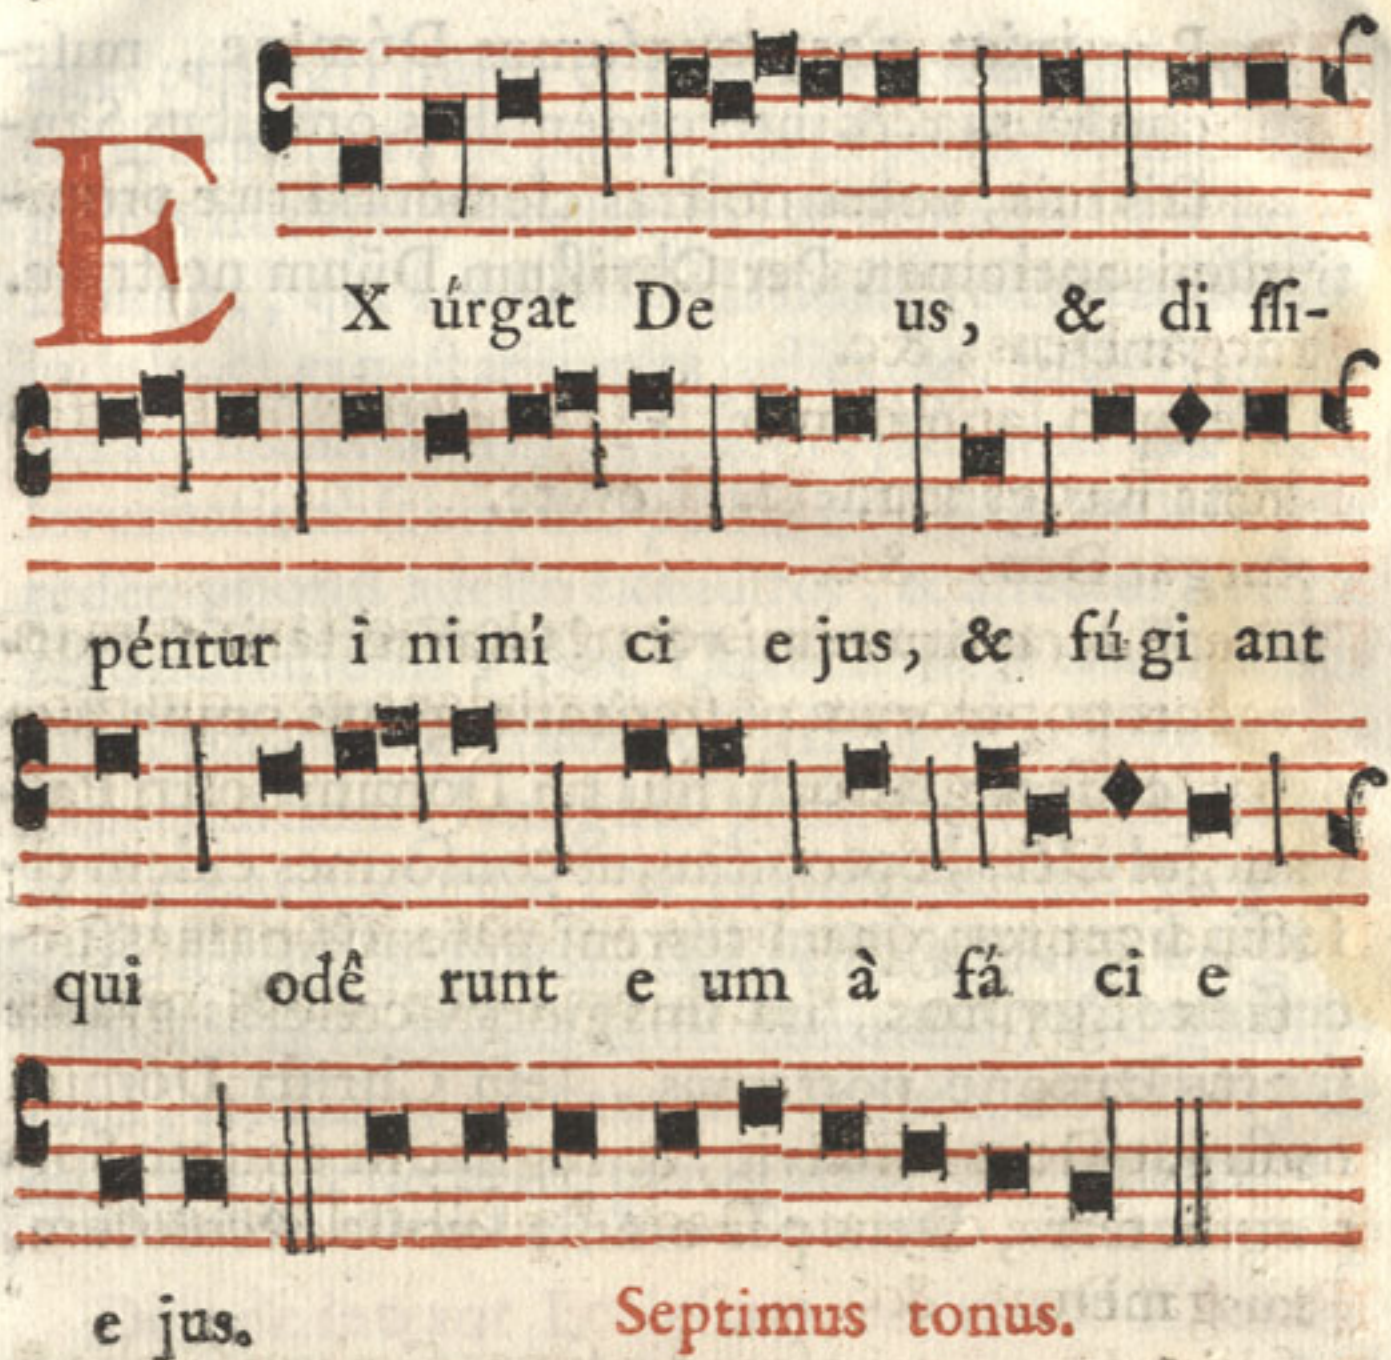 EX úrgat De us, & di ſſi-
péntur i ni mí ci e jus, & fú gi ant
qui odê runt e um à fá ci e
e jus. Septimus tonus.